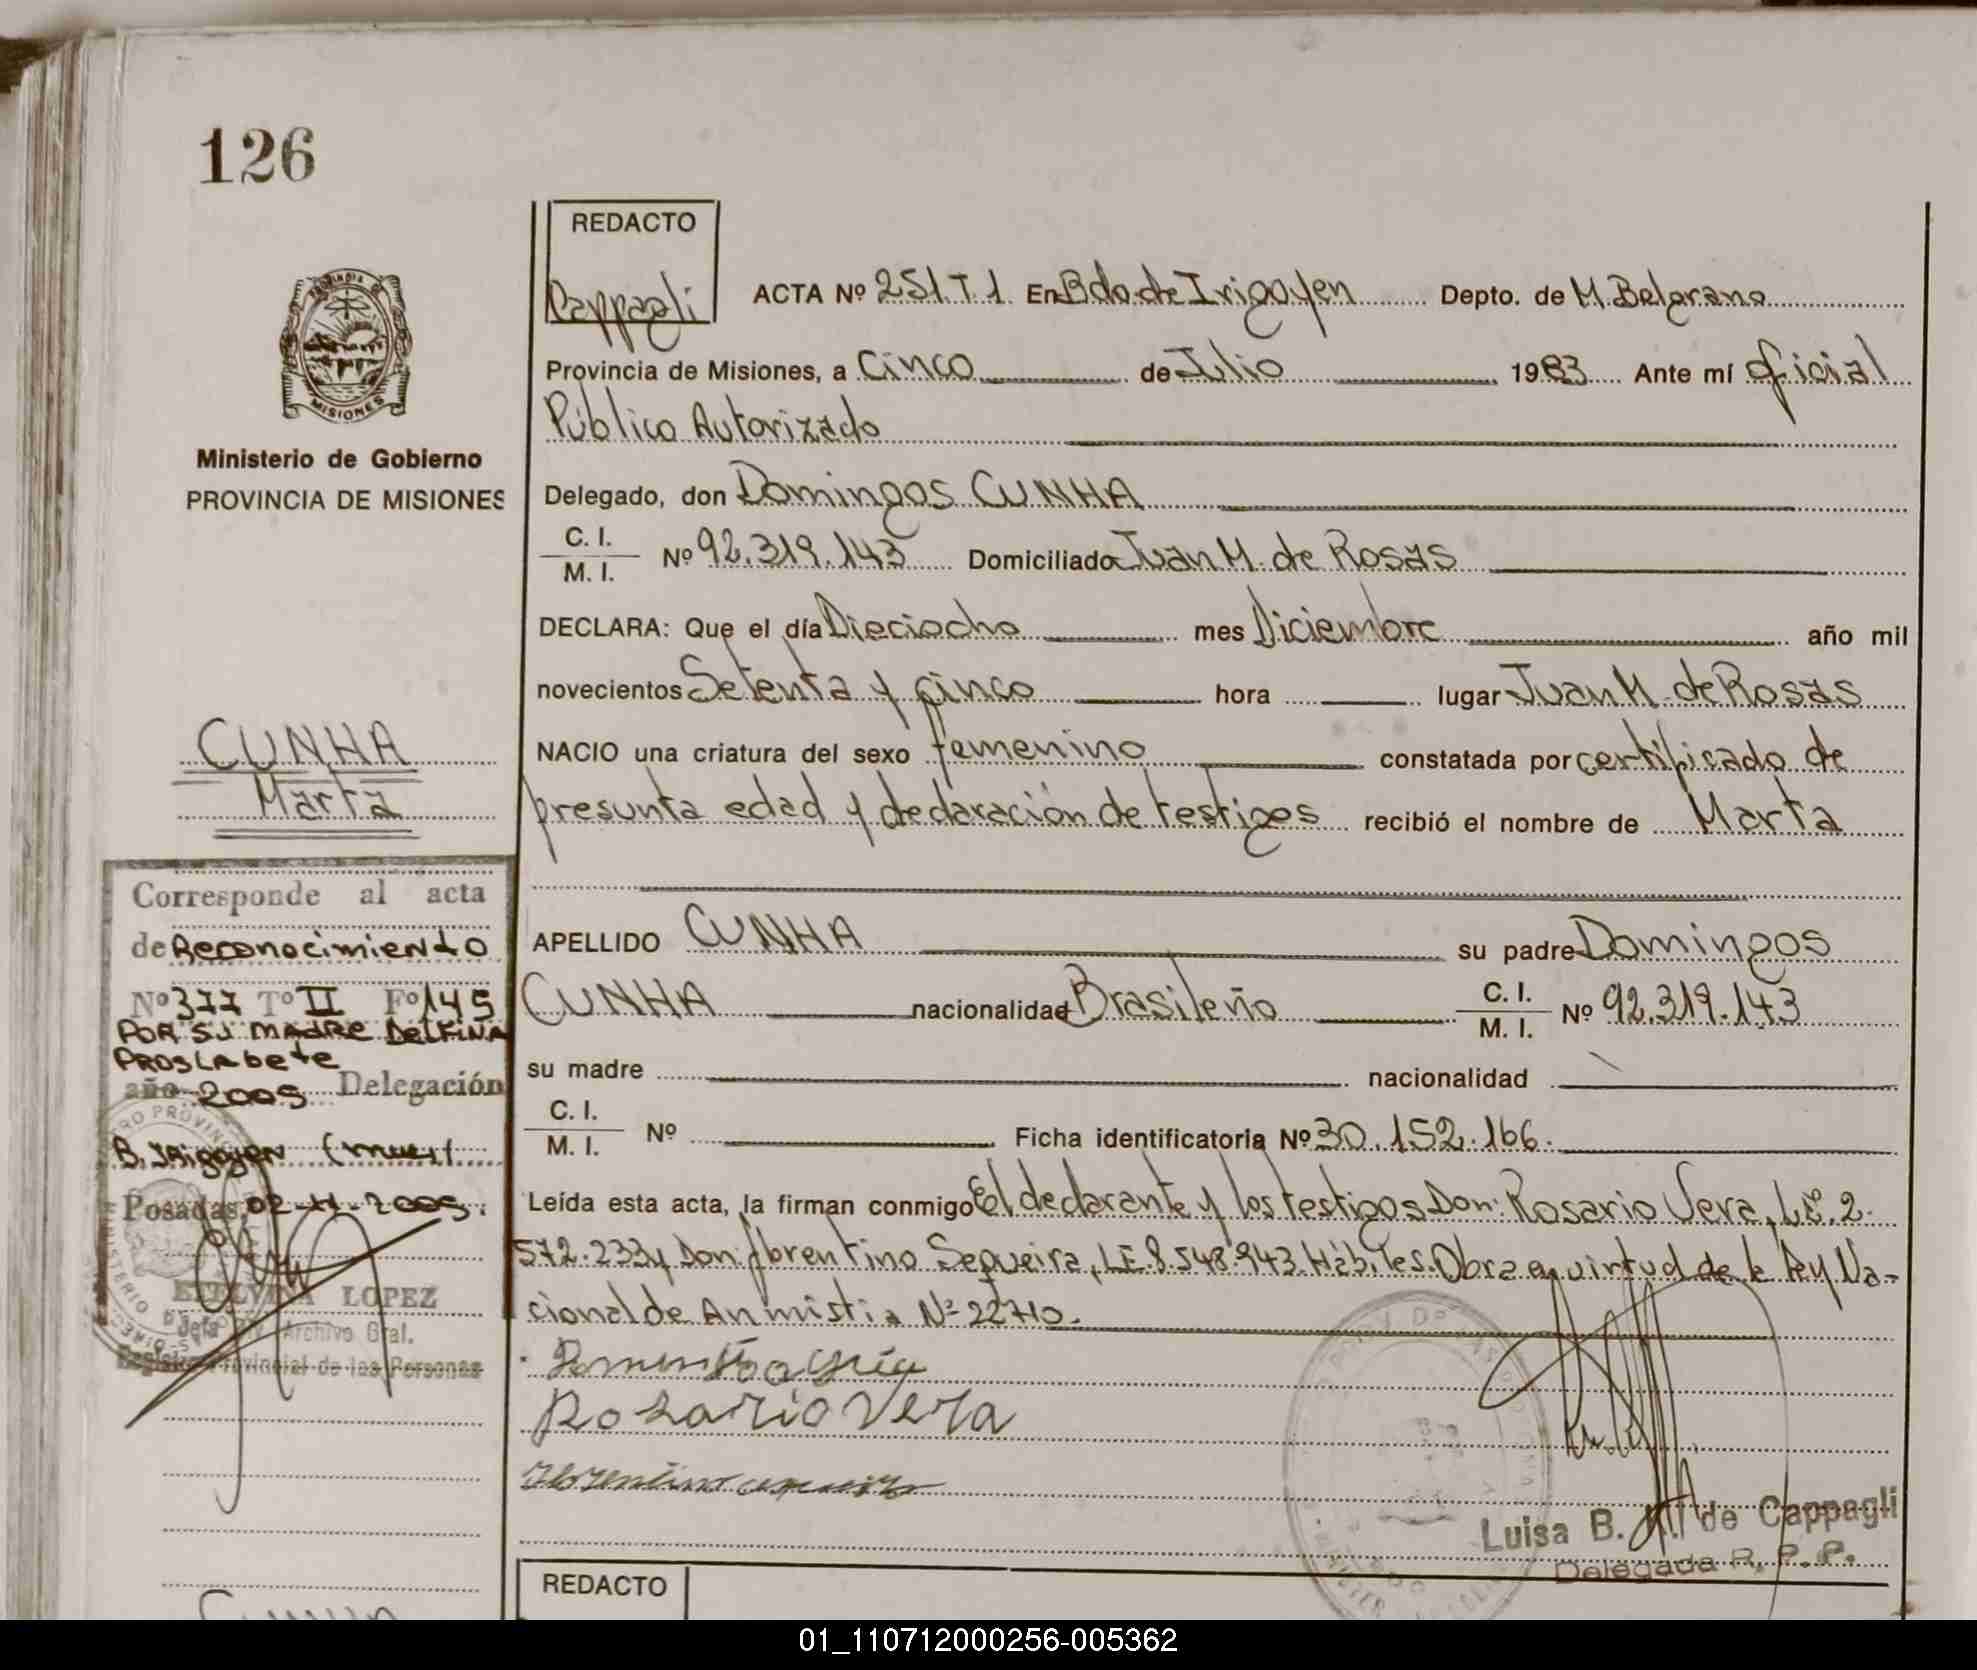 126
REDACTO
Cappagli
ACTA Nº 251. T 1. En Bdo. de Irigoyen Depto. de M. Belgrano
Provincia de Misiones, a Cinco de Julio 1983 Ante mí Oficial
Público Autorizado
Ministerio de Gobierno
PROVINCIA DE MISIONES
Delegado, don Domingos CUNHA
C. I.
M. I.
Nº 92.319.143 Domiciliado Juan M. de Rosas
DECLARA: Que el día Dieciocho mes Diciembre año mil
novecientos Setenta y cinco hora lugar Juan M. de Rosas
NACIO una criatura del sexo femenino constatada por certificado de
presunta edad y declaración de testigos recibió el nombre de Marta
CUNHA
Marta
APELLIDO CUNHA su padre Domingos
CUNHA nacionalidad Brasileño C. I.
M. I. Nº 92.319.143
su madre nacionalidad
C. I.
M. I. Nº Ficha identificatoria Nº 30.152.166.
Leída esta acta, la firman conmigo El declarante y los testigos Don: Rosario Vera, L.E. 2.
572.233 y Don florentino Sequeira, LE. 8.548.943. Hábiles. Obra en virtud de la Ley Na-
cional de Anmistia Nº 22710.
Rosario Vera
Luisa B. de Cappagli
Delegada R. P. P.
Corresponde al acta
de Reconocimiento
Nº 377 Tº II Fº 145
POR SU MADRE DELFINA
PROSLABETE
año 2005 Delegación
B. IRigoyen
Posadas, 02-11-2005.
ETELVINA LOPEZ
Jefa Div. Archivo Gral.
Registro Provincial de las Personas
MISIONES
REDACTO
01_110712000256-005362